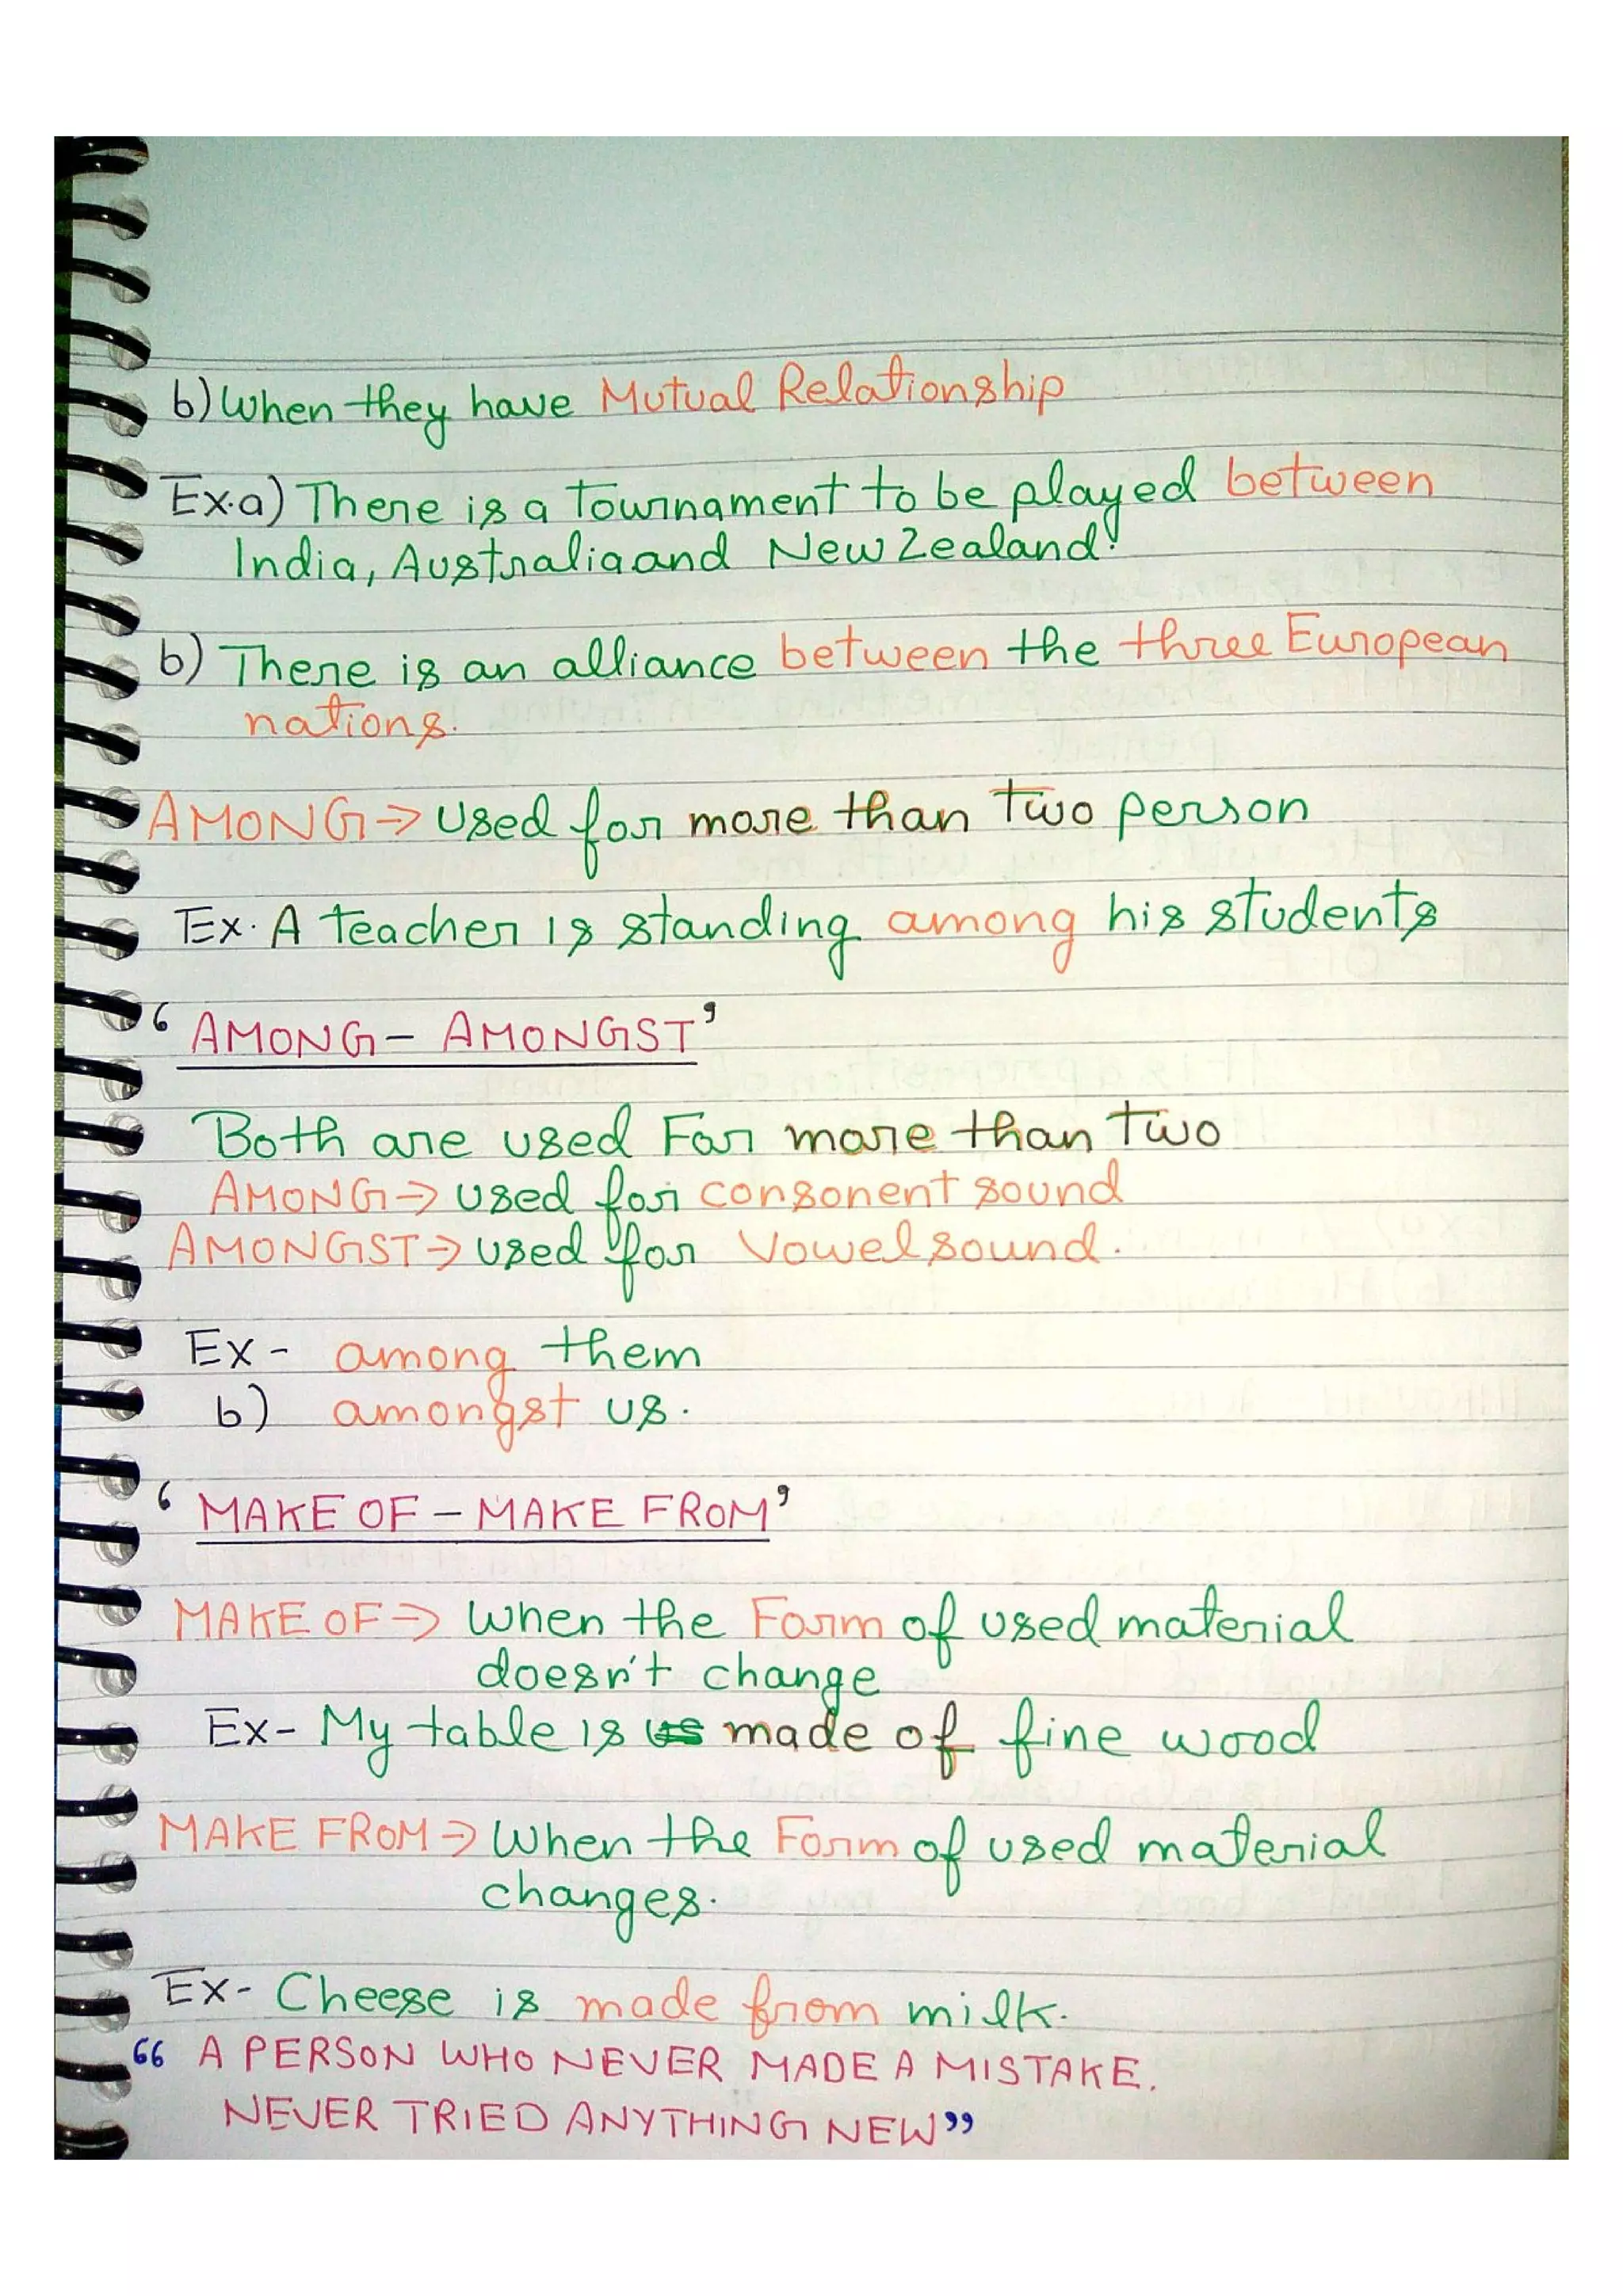 b) When they have Mutual Relationship
Ex. a) There is a tournament to be played between
India, Australia and New Zealand.
b) There is an alliance between the three European
nations.
AMONG → Used for more than two person
Ex. A teacher is standing among his students
‘AMONG – AMONGST’
Both are used For more than two
AMONG → used for consonent sound
AMONGST → used for Vowel sound.
Ex - among them
b) amongst us.
‘MAKE OF – MAKE FROM’
MAKE OF → When the Form of used material
doesn't change
Ex - My table is us made of fine wood
MAKE FROM → When the Form of used material
changes.
Ex - Cheese is made from milk.
“A PERSON WHO NEVER MADE A MISTAKE.
NEVER TRIED ANYTHING NEW”